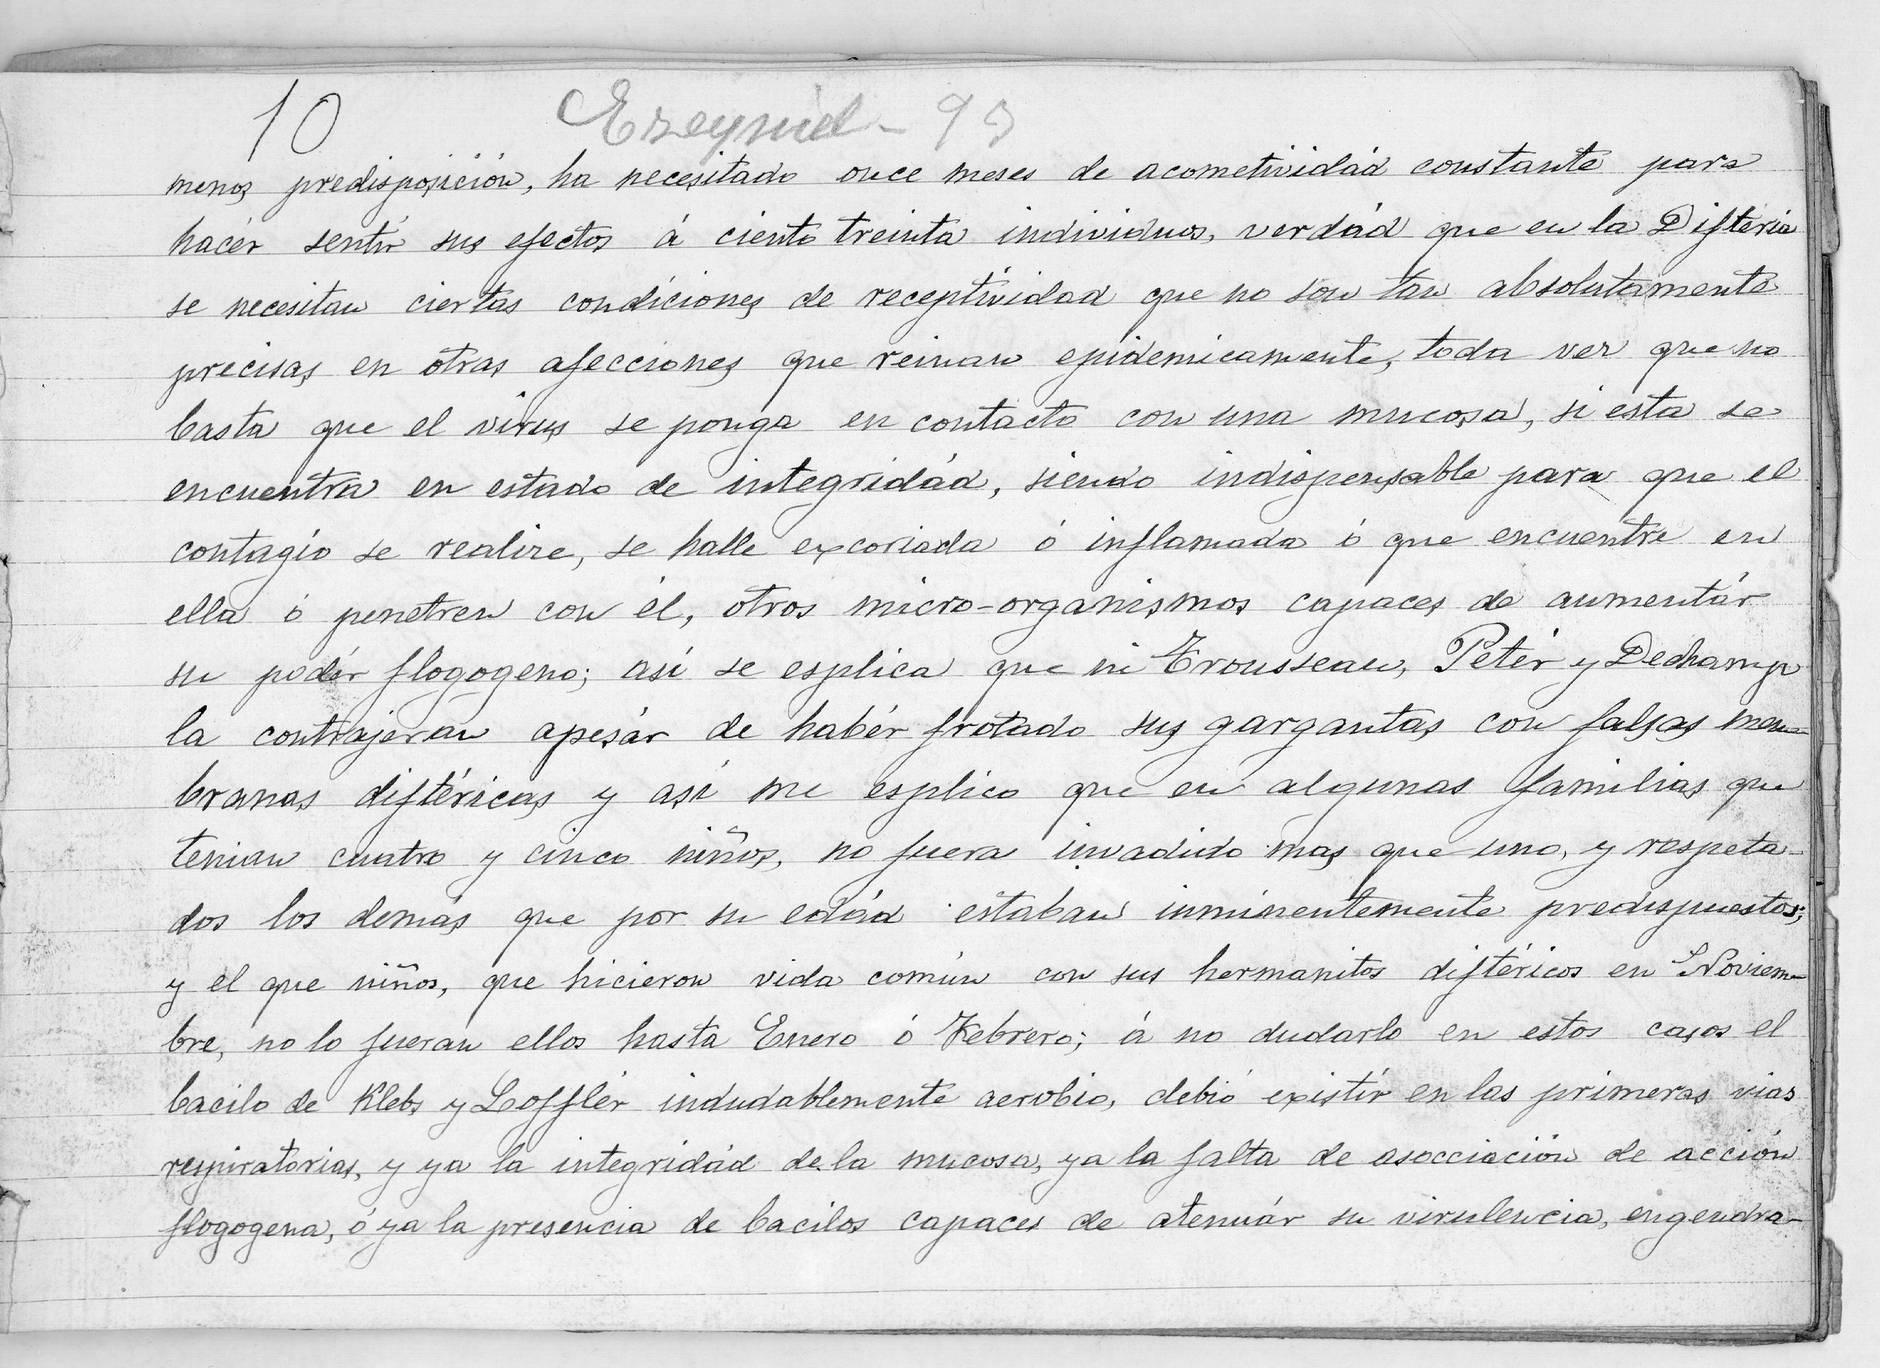 10 Ezequiel - 93
menos predisposición, ha necesitado once meses de acometividád constante para
hacér sentir sus efectos á ciento treinta individuos, verdád que en la Difteria
se necesitan ciertas condiciones de receptividad que no son tan absolutamente
precisas en otras afecciones que reinan epidemicamente, toda vez que no
basta que el virus se ponga en contacto con una mucosa, si esta se
encuentra en estado de integridád, siendo indispensable para que el
contagio se realize, se halle excoriada ó inflamada ó que encuentre en
ella ó penetren con él, otros micro-organismos capaces de aumentár
su podér flogogeno; así se esplica que ni Trousseau, Petér y Dechamp
la contrajeran apesár de habér frotado sus gargantas con falsas mem-
branas diftéricas y así me esplico que en algunas familias que
tenian cuatro y cinco niños, no fuera invadido mas que uno, y respeta-
dos los demás que por su edád estaban inminentemente predispuestos;
y el que niños, que hicieron vida común con sus hermanitos diftéricos en Noviem-
bre, no lo fueran ellos hasta Enero ó Febrero; á no dudarlo en estos casos el
bacilo de Klebs y Loffler indudablemente aerobio, debió existír en las primeras vias
respiratorias, y ya la integridád de la mucosa, ya la falta de asocciación de acción
flogogena, ó ya la presencia de bacilos capaces de atenuár su virulencia, engendra-